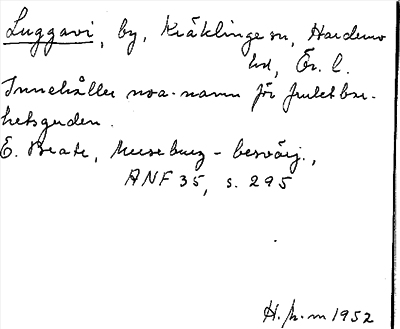 Luggavi, by, Kräklinge sn, Hardemo
hd, Ör. l.
Innehåller noa-namn för fruktbar-
hetsguden.
E. Brate, Merseburg-besvärj.,
ANF 35, s. 295
H. h-m 1952